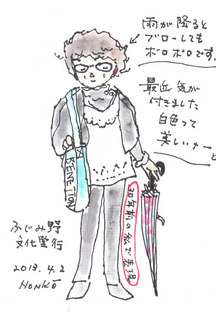 雨が降ると
ブローしても
ボロボロです。
最近気が
付きました
白色って
美しいナーと
30年前の私で表現
ふじみ野
文化堂行
2013.4.2
HONKO